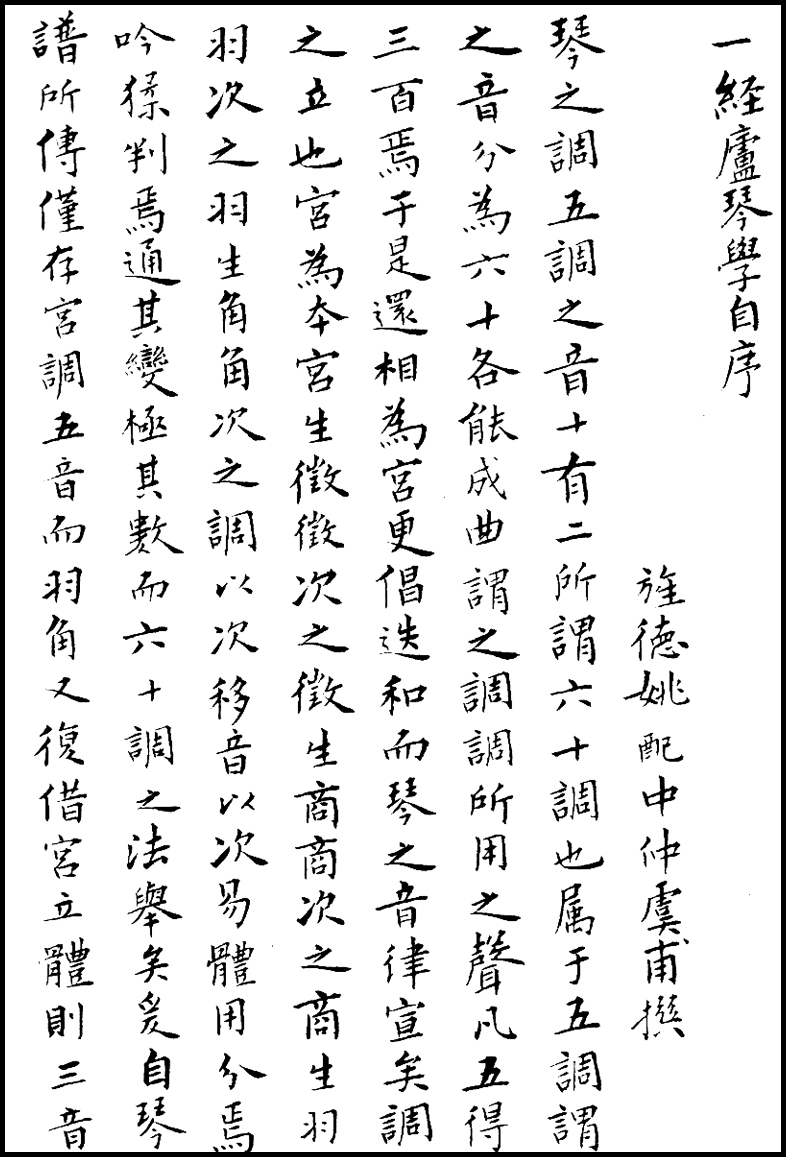 一經廬琴學自序
旌德姚配中仲虞甫撰
琴之調五調之音十有二所謂六十調也属于五調謂
之音分為六十各能成曲謂之調調所用之聲凡五得
三百焉于是還相為宮更倡迭和而琴之音律宣矣調
之立也宮為本宮生徵徵次之徵生商商次之商生羽
羽次之羽生角角次之調以次移音以次易體用分焉
吟猱判焉通其變極其數而六十調之法舉矣爰自琴
譜所傳僅存宮調五音而羽角又復借宮立體則三音